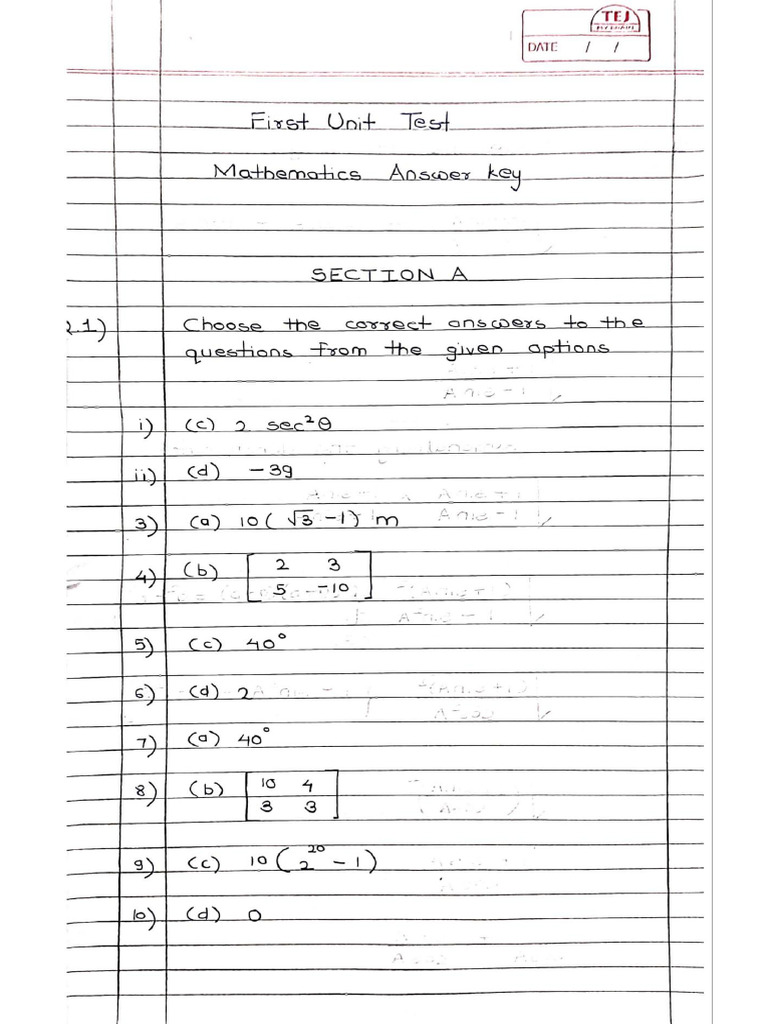 TEJ
DATE / /
First Unit Test
Mathematics Answer key
SECTION A
.1) Choose the correct answers to the
questions from the given options
i) (c) 2 sec²θ
ii) (d) -39
3) (a) 10(√3 -1) m
4) (b) [2 3
5 -10]
5) (c) 40°
6) (d) 2
7) (a) 40°
8) (b) [10 4
3 3]
9) (c) 10(2²⁰ - 1)
10) (d) 0